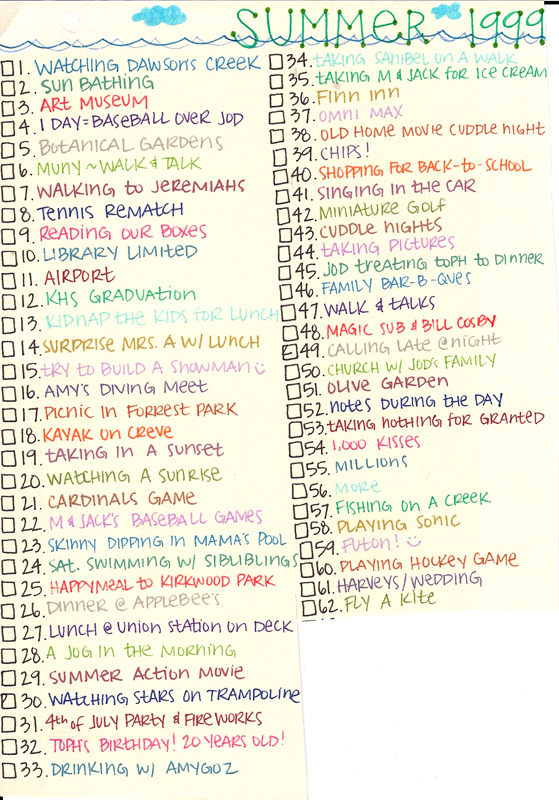 SUMMER 1999
1. WATCHING DAWSON'S CREEK
2. SUN BATHING
3. ART MUSEUM
4. 1 DAY=BASEBALL OVER JOD
5. BOTANICAL GARDENS
6. MUNY~WALK & TALK
7. WALKING to JEREMIAHS
8. TENNIS REMATCH
9. READING OUR BOXES
10. LIBRARY LIMITED
11. AIRPORT
12. KHS GRADUATION
13. KIDNAP the KIDS FOR LUNCH
14. SURPRISE MRS. A W/ LUNCH
15. TRY to BUILD A SNOWMAN
16. AMY'S DIVING MEET
17. PICNIC IN FORREST PARK
18. KAYAK on CREVE
19. TAKING IN A SUNSET
20. WATCHING A SUNRISE
21. CARDINALS GAME
22. M & JACK'S BASEBALL GAMES
23. SKINNY DIPPING IN MAMA'S POOL
24. SAT. SWIMMING W/ SIBLIBLINGS
25. HAPPYMEAL to KIRKWOOD PARK
26. DINNER @ APPLEBEE'S
27. LUNCH @ UNION STATION ON DECK
28. A JOG IN the MORNING
29. SUMMER ACTION MOVIE
30. WATCHING STARS ON TRAMPOLINE
31. 4th OF JULY PARTY & FIREWORKS
32. TOPH'S BIRTHDAY! 20 YEARS OLD!
33. DRINKING W/ AMYGOZ
34. TAKING SANIBEL ON A WALK
35. TAKING M & JACK FOR ICE CREAM
36. FINN INN
37. OMNI MAX
38. OLD HOME MOVIE CUDDLE NIGHT
39. CHIPS!
40. SHOPPING FOR BACK-to-SCHOOL
41. SINGING IN the CAR
42. MINIATURE GOLF
43. CUDDLE NIGHTS
44. TAKING PICTURES
45. JOD TREATING TOPH to DINNER
46. FAMILY BAR-B-QUES
47. WALK & TALKS
48. MAGIC SUB & BILL COSBY
49. CALLING LATE @ NIGHT
50. CHURCH W/ JOD'S FAMILY
51. OLIVE GARDEN
52. NOTES DURING the DAY
53. TAKING NOTHING FOR GRANTED
54. 1,000 KISSES
55. MILLIONS
56. MORE
57. FISHING ON A CREEK
58. PLAYING SONIC
59. FUTON!
60. PLAYING HOCKEY GAME
61. HARVEYS/WEDDING
62. FLY A KITE